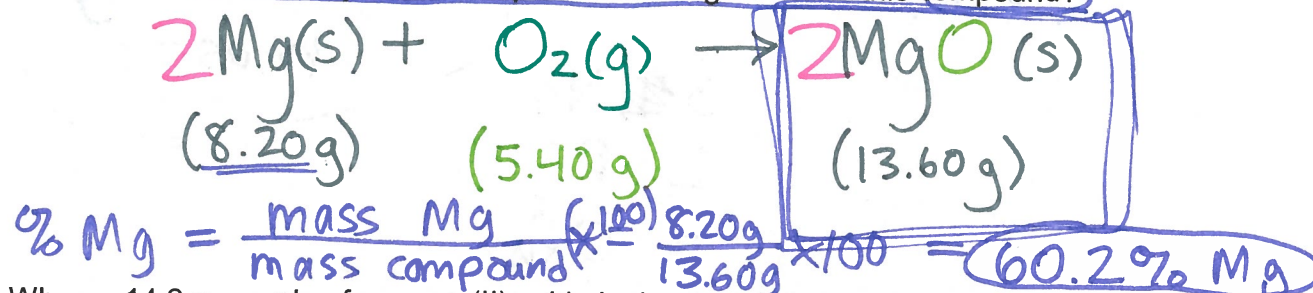 compound?
2Mg(s) + O₂(g) → 2MgO (s)
(8.20g) (5.40 g) (13.60g)
% Mg = mass Mg / mass compound (x100) = 8.20g / 13.60g x100 = 60.2% Mg